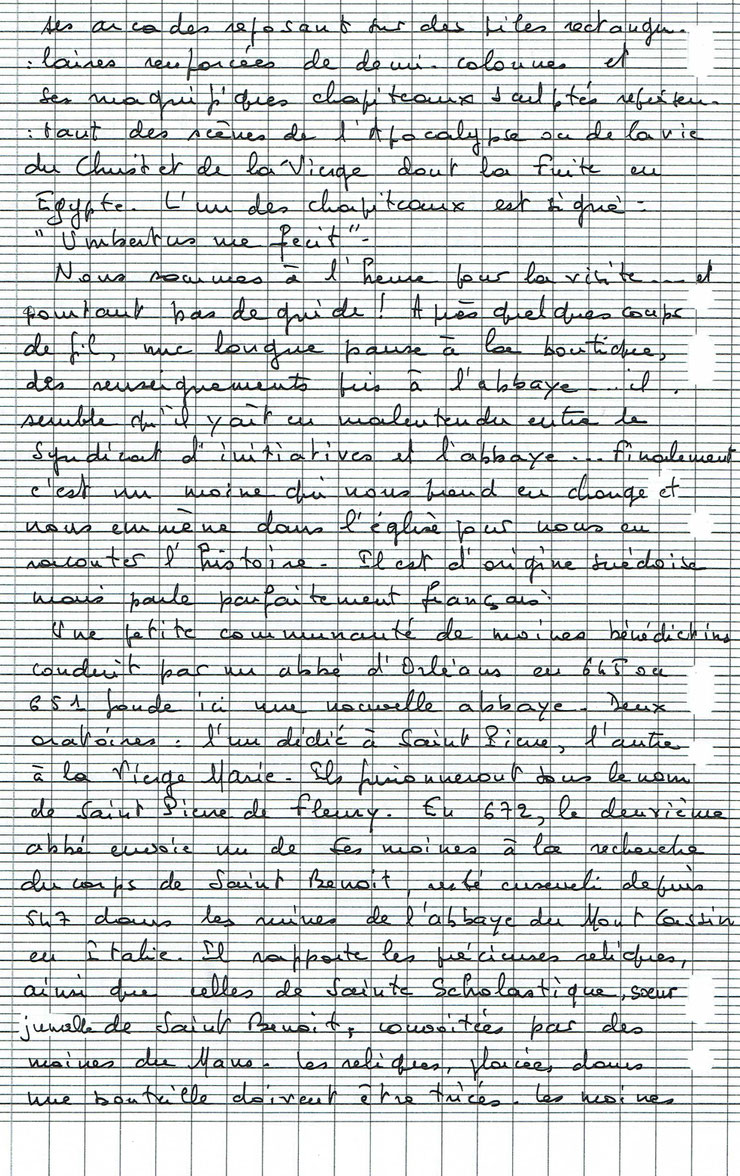 ses arcades reposant sur des piles rectangu-
:laires renforcées de demi-colonnes et
ses magnifiques chapiteaux sculptés représen-
:tant des scènes de l'Apocalypse ou de la vie
du Christ et de la Vierge dont la Fuite en
Egypte. L'un des chapiteaux est signé :
"Umbertus me fecit"-
Nous sommes à l'heure pour la visite.... et
pourtant pas de guide ! Après quelques coups
de fil, une longue pause à la boutique,
des renseignements pris à l'abbaye... il
semble qu'il y ait eu malentendu entre le
Syndicat d'initiatives et l'abbaye... finalement
c'est un moine qui nous prend en charge et
nous emmène dans l'église pour nous en
raconter l'histoire. Il est d'origine suédoise
mais parle parfaitement français.
Une petite communauté de moines bénédictins
conduit par un abbé d'Orléans en 645 ou
651 fonde ici une nouvelle abbaye. Deux
oratoires : l'un dédié à Saint Pierre, l'autre
à la Vierge Marie. Ils fusionneront sous le nom
de Saint Pierre de Fleury. En 672, le deuxième
abbé envoie un de ses moines à la recherche
du corps de Saint Benoit, resté enseveli depuis
547 dans les ruines de l'abbaye du Mont Cassin
en Italie. Il rapporte les précieuses reliques,
ainsi que celles de Sainte Scholastique, sœur
jumelle de Saint Benoit, convoitées par des
moines du Mans. Les reliques, placées dans
une bouteille doivent être triées. Les moines